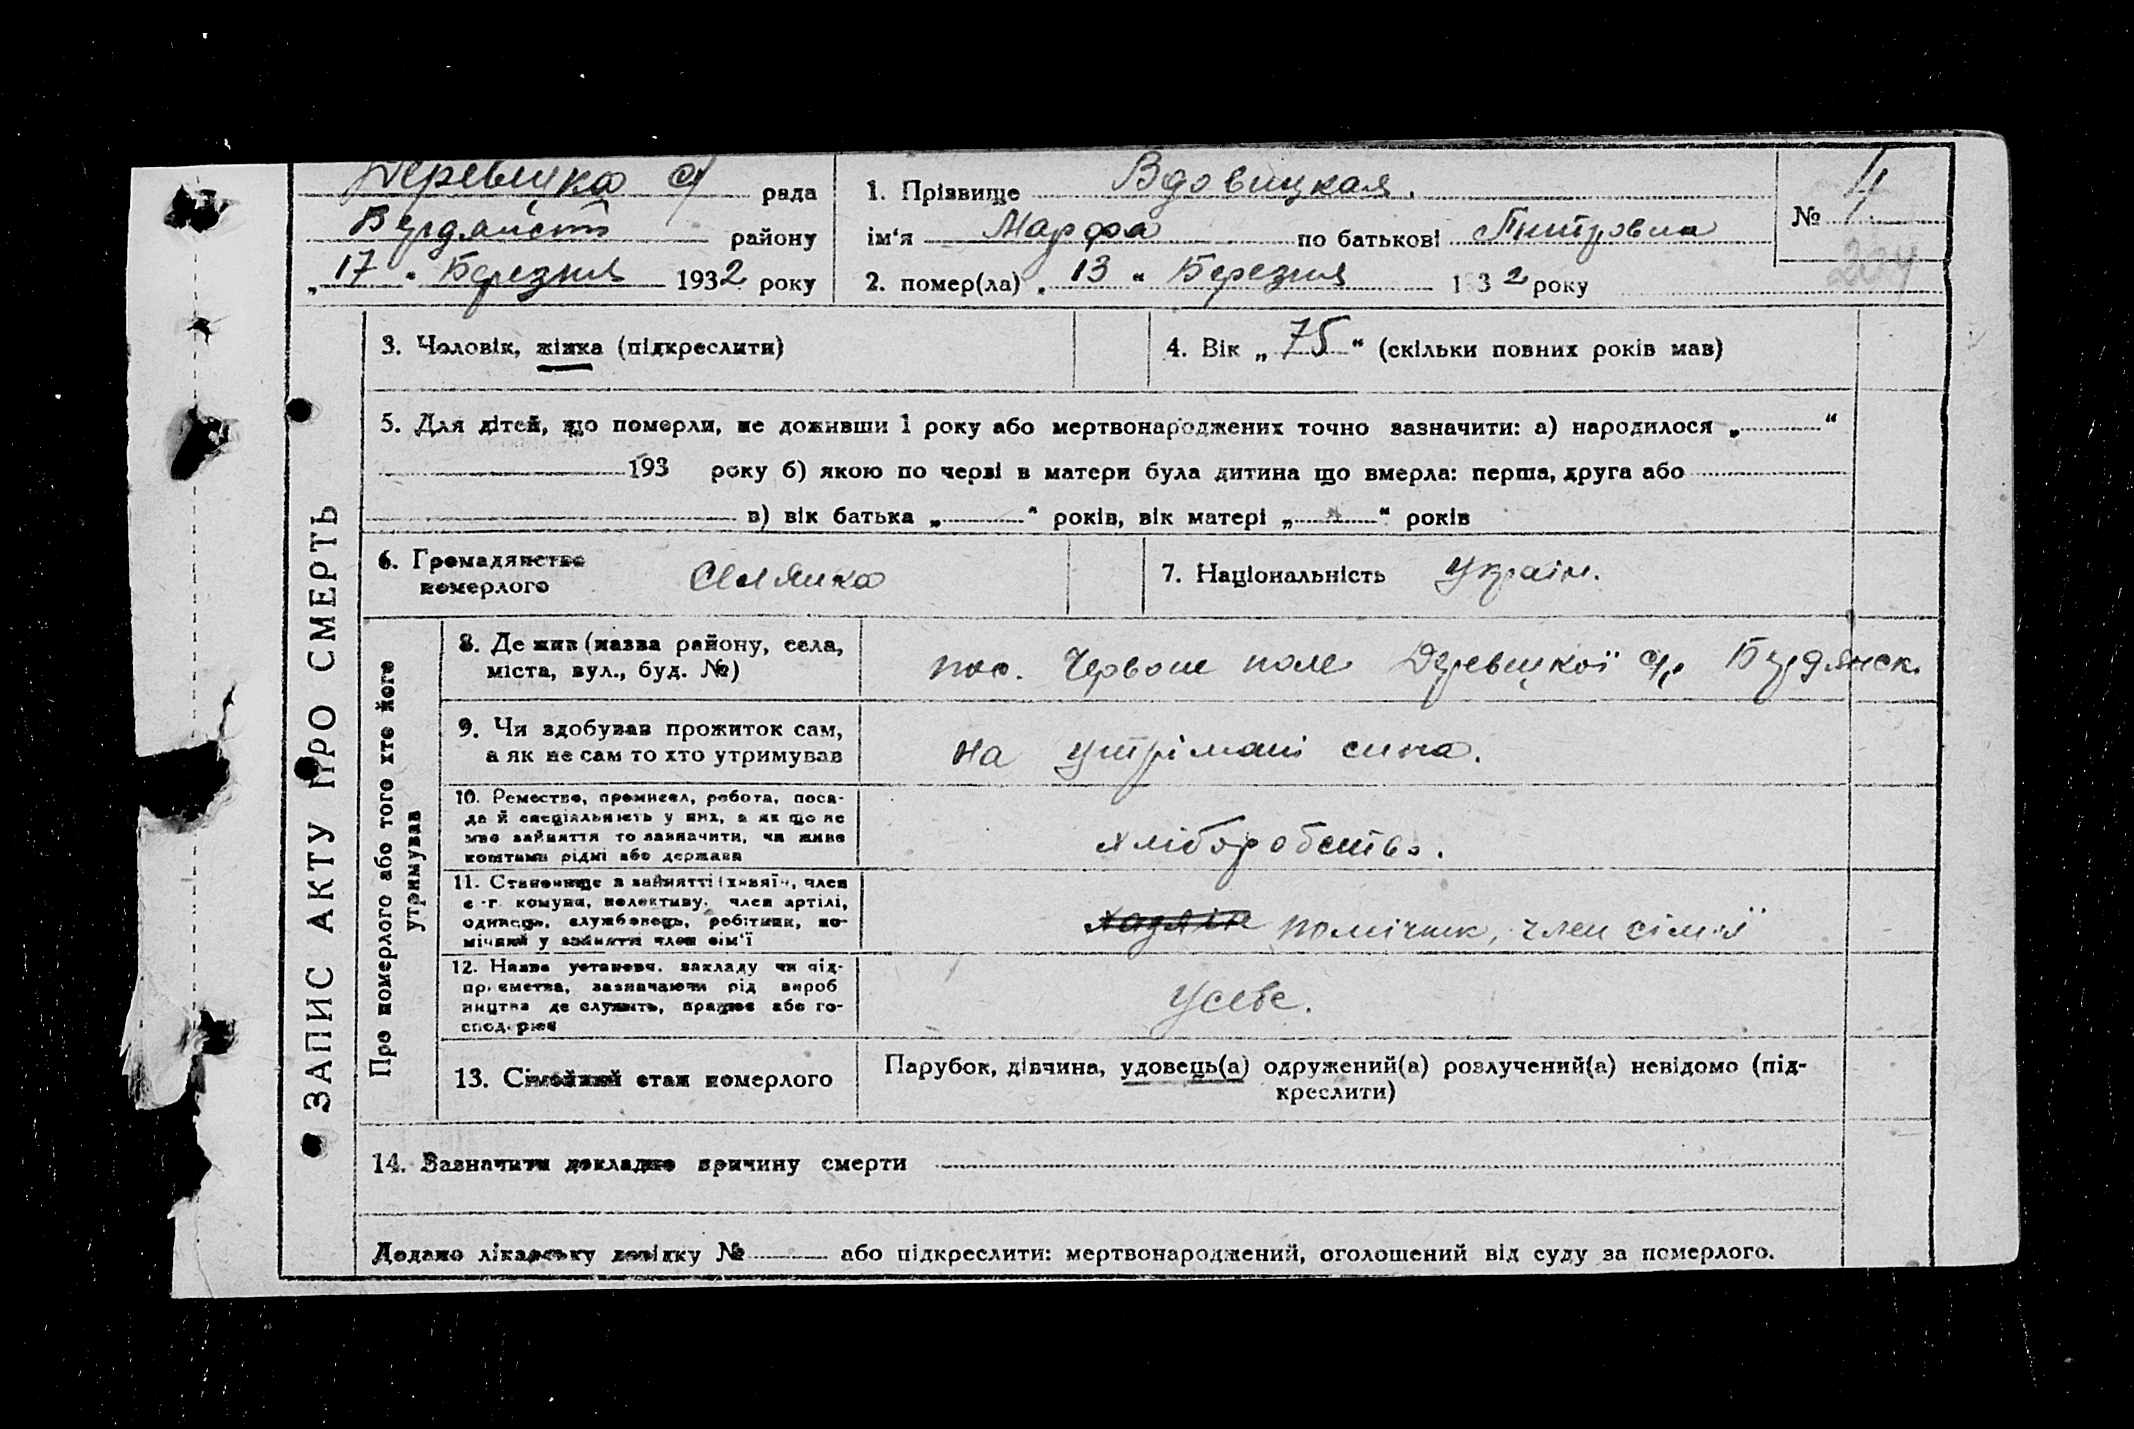 Деревицка с/ рада
району
„ 17 “ Березня 1932 року
1. Прізвище Вдовицкая.
ім‘я Марфа по батькові
2. помер(ла) „ 13 “ Березня 1932 року
№ 4
204
ЗАПИС АКТУ ПРО СМЕРТЬ
3. Чоловік, жінка (підкреслити)
4. Вік „ 75 “ (скільки повних років мав)
5. Для дітей, що померли, не доживши 1 року або мертвонароджених точно зазначити: а) народилося „ “
193 року б) якою по черві в матери була дитина що вмерла: перша, друга або
в) вік батька „ “ років, вік матері „ “ років
6. Громадянство
померлого
Селянка
7. Національність Україн.
Про померлого або того хто його
утримував
8. Де жив (назва району, села,
міста, вул., буд. №)
пос. Червоне поле Деревицкої с/р
9. Чи здобував прожиток сам,
а як не сам то хто утримував
на утрімані сина.
10. Ремество, промисел, робота, поса-
да й спеціяльність у них, а як що не
мво зайняття то зазначити, чи живе
коштами рідні або держави
хліборобство.
11. Становище в зайнятті (хазяїн, член
с.-г. комуни, колективу, член артілі,
одинець, службовець, робітник, по-
мічний у зайнятті член сім‘ї
хазяін помічник, член сімʼї
12. Назва установи, закладу чи під-
приємства, зазначаючи рід вироб
ництва де служить, працює або го-
сподарює
у себе.
13. Сімейний стан померлого
Парубок, дівчина, удовець(а) одружений(а) розлучений(а) невідомо (під-
креслити)
14. Зазначити докладно причину смерти
Додано лікарську довідку № або підкреслити: мертвонароджений, оголошений від суду за померлого.